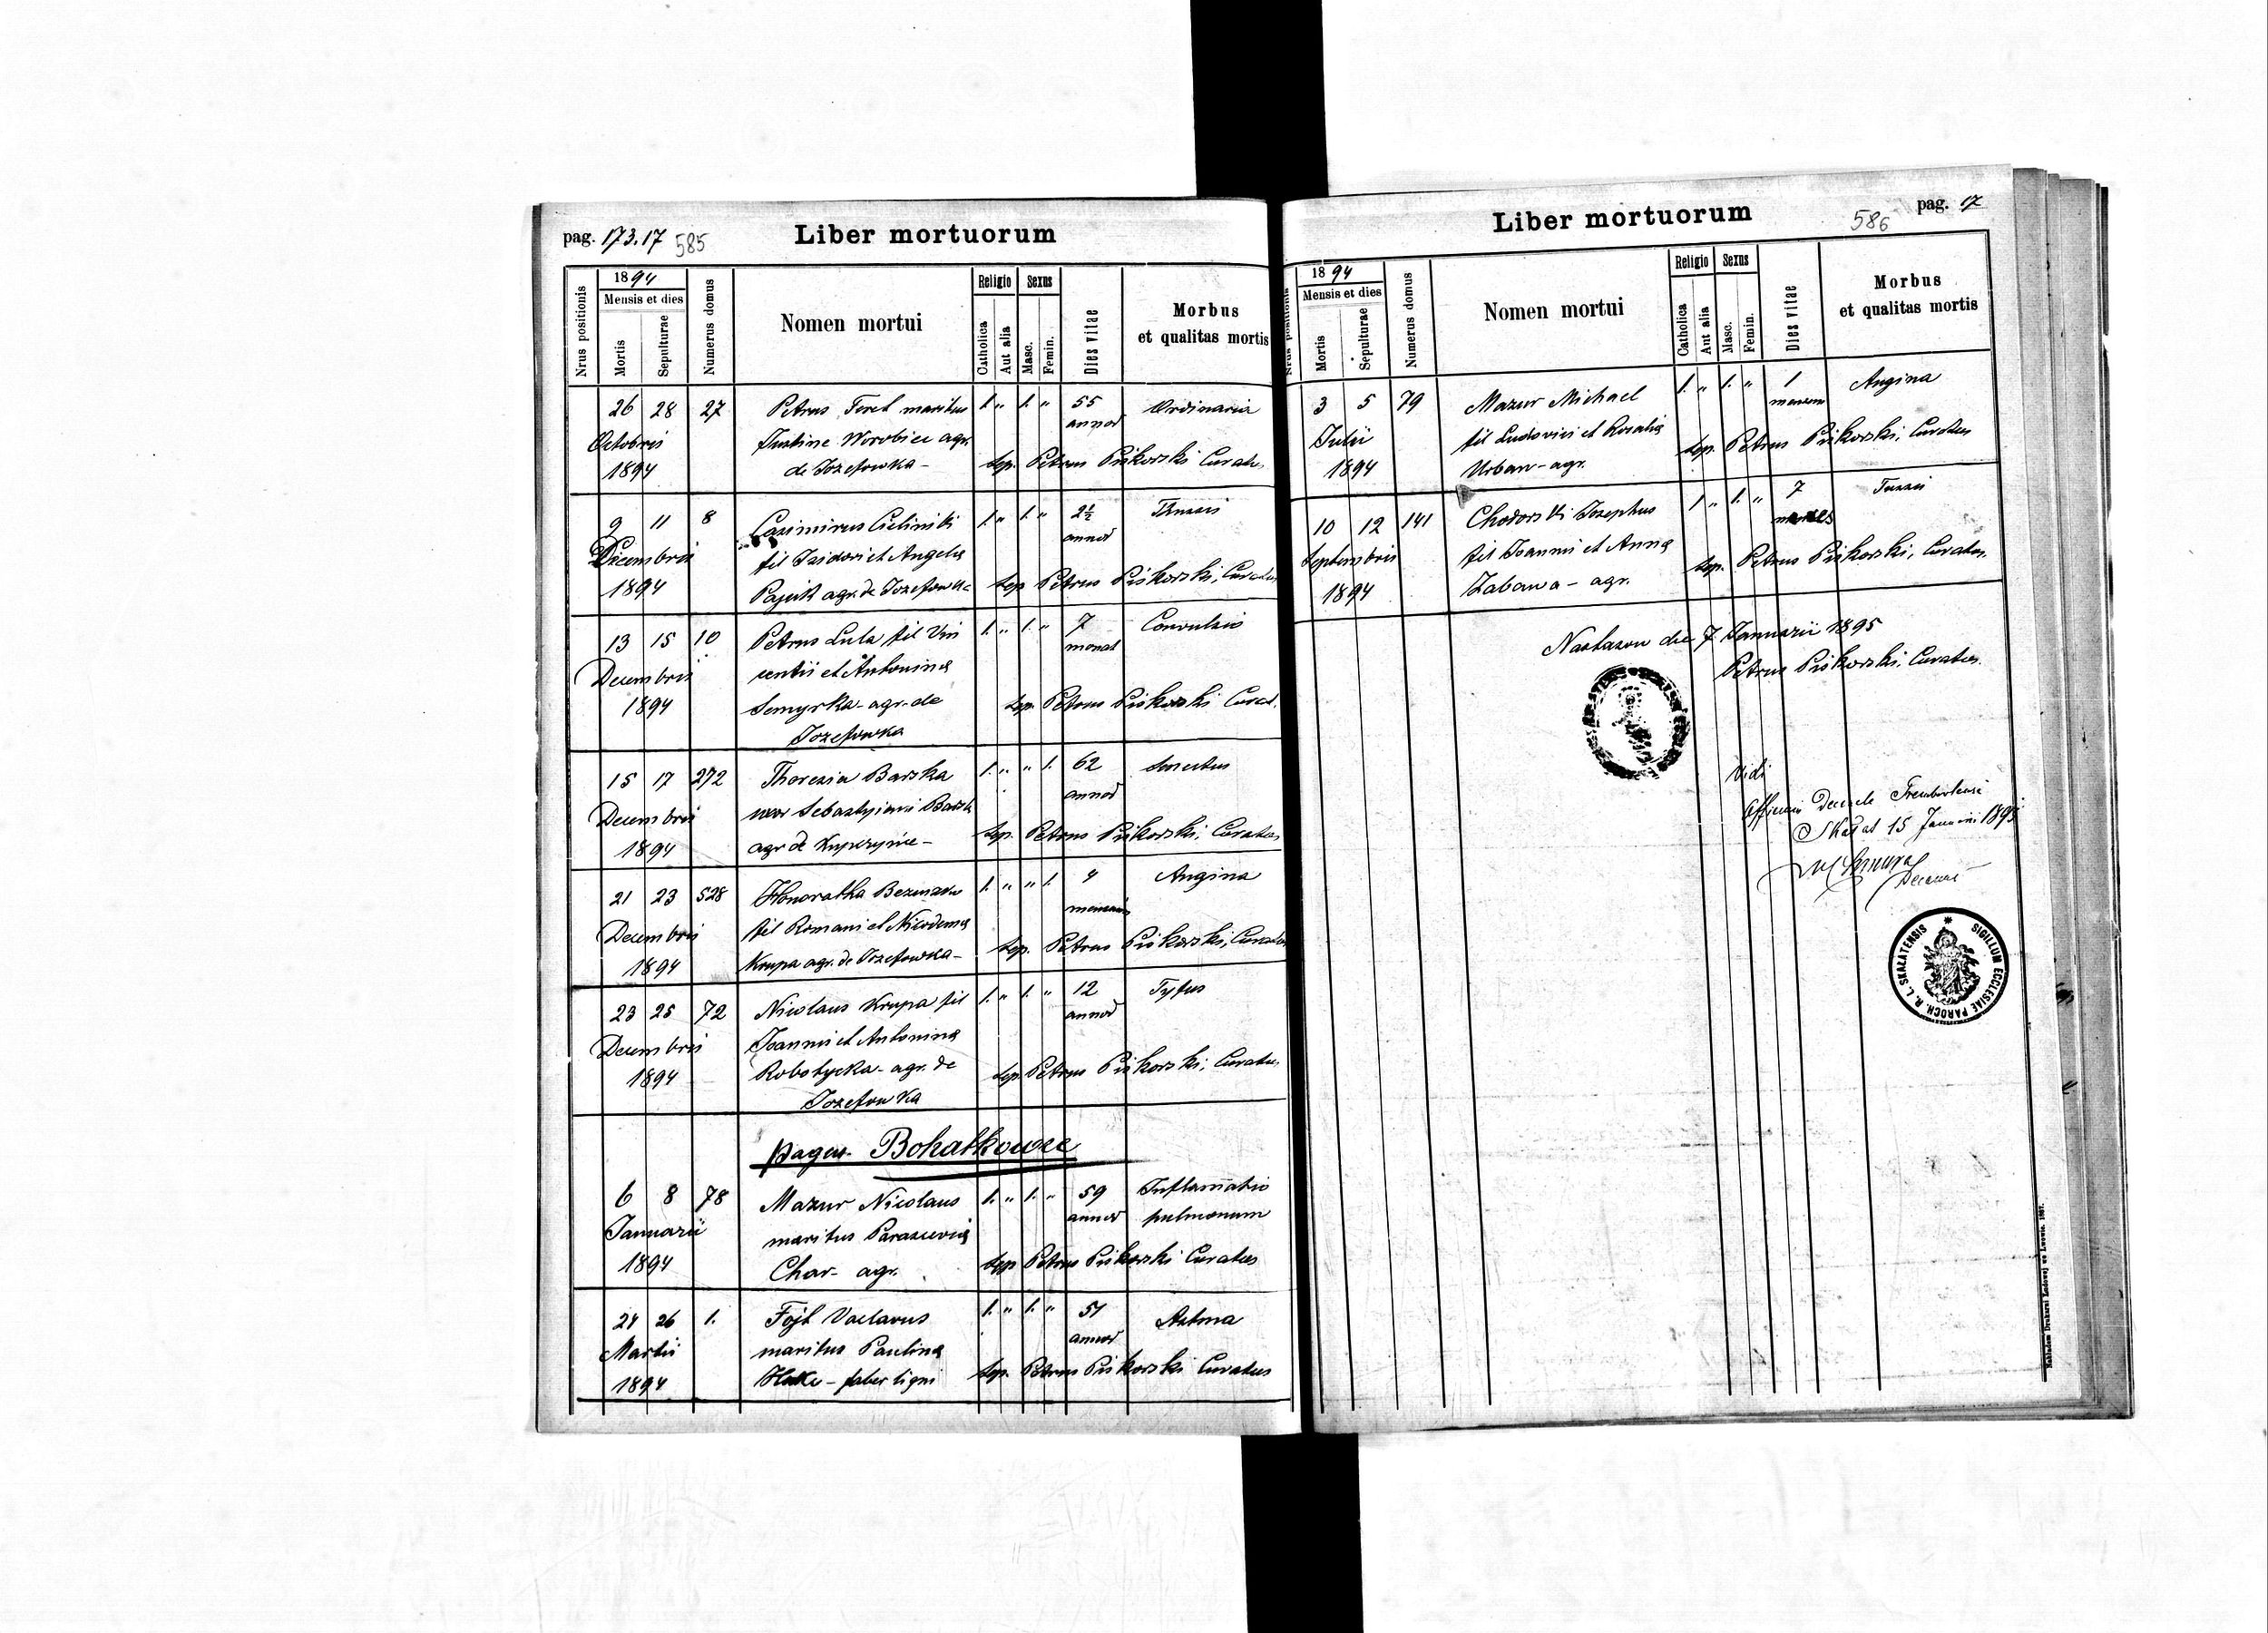 pag. 173.17 585
Liber mortuorum
Nrus positionis
1894
Mensis et dies
Mortis
Sepulturae
Numerus domus
Nomen mortui
Religio
Catholica
Aut alia
Sexus
Masc.
Femin.
Dies vitae
Morbus
et qualitas mortis
26 28 27 Petrus Feret maritus 1. " 1. " 55 Ordinaria
annor
Octobris Justine Worobiec agr.
1894 de Jozefowka - Sep. Petrus Piskorski Curatus
9 11 8 Casimirus Cielinski 1. " 1. " 2½ Thussis
annor
Decembris fil Isidori et Angela
1894 Pajuk agr. de Jozefowka Sep Petrus Piskorski, Curatus
13 15 10 Petrus Lula fil Vin 1. " 1. " 7 Convulsio
monat
Decembris centii et Antonina
1894 Semyrka - agr. de Sep. Petrus Piskorski Curat.
Jozefowka
15 17 272 Theresia Barska 1. " " 1. 62 Senectus
annor
Decembris uxor Sebastyiani Barsk
1894 agr de Kupczynce - Sep. Petrus Piskorski, Curatus
21 23 528 Honoratha 1. " " 1. 4 Angina
mensium
Decembris fil Romani et Nicodema
1894 Krupa agr. de Jozefowka - Sep. Petrus Piskorski, Curatus
23 25 72 Nicolaus Krupa fil 1. " 1. " 12 Tyfus
annor
Decembris Joannis et Antonina
1894 Robotycka - agr. de Sep. Petrus Piskorski, Curatus
Jozefowka
pagus Bohatkowce
6 8 78 Mazur Nicolaus 1. " 1. " 59 Inflamatio
annor pulmonum
Januarii maritus Parascevia
1894 Char - agr. Sep Petrus Piskorski Curatus
24 26 1. Fojt Vaclavus 1. " 1. " 51 Astma
annor
Martii maritus Paulina
1894 faber ligni Sep. Petrus Piskorski Curatus
Liber mortuorum
586 pag. 17
Nrus positionis
1894
Mensis et dies
Mortis
Sepulturae
Numerus domus
Nomen mortui
Religio
Catholica
Aut alia
Sexus
Masc.
Femin.
Dies vitae
Morbus
et qualitas mortis
3 5 79 Mazur Michael 1. " 1. " 1 Angina
Julii fil Ludovici et Rosalia
1894 Urban - agr. Sep. Petrus Piskorski, Curatus
10 12 141 Chodorski Josephus 1 " 1. " 7 Tussis
menses
Septembris fil Joannis et Anna
1894 Zabawa - agr. Sep. Petrus Piskorski, Curatus.
Nastasow die 7 Januarii 1895
Petrus Piskorski, Curatus.
Vidi
Skałat 15 Januarii 1895
SIGILLUM ECCLESIAE PAROCH. R. L. SKALATENSIS
Nakładem Drukarni Ludowej we Lwowie. 1887.